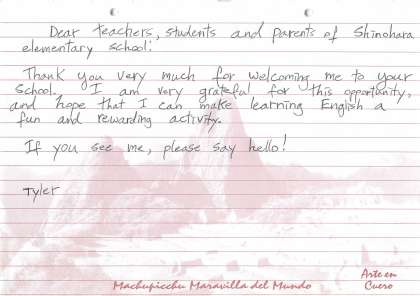 Dear teachers, students and parents of Shinohara
elementary school:
Thank you very much for welcoming me to your
school. I am very grateful for this opportunity,
and hope that I can make learning English a
fun and rewarding activity.
If you see me, please say hello!
Tyler
Machupicchu Maravilla del Mundo
Arte en
Cuero